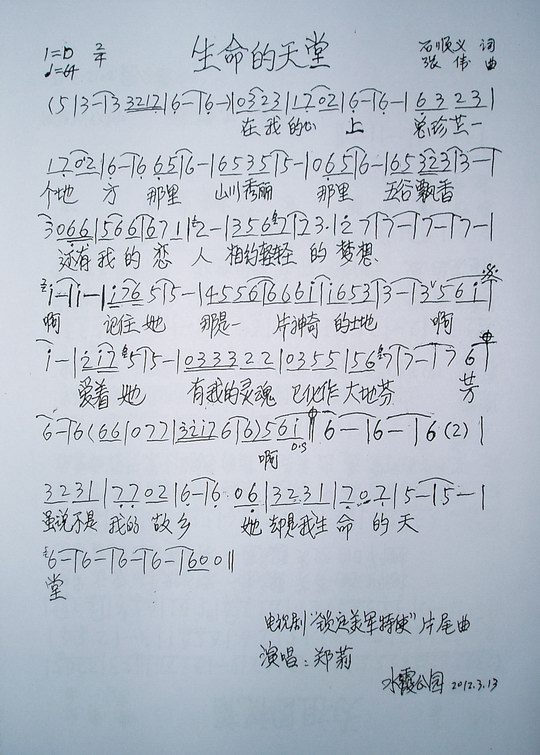 生命的天堂
1=D 2/4
♩=64
石顺义 词
张伟 曲
(5 | 3 - | 3 3 3212 | 6 - | 6 -) | 0323 | 1702 | 6 - | 6 - | 6 3 2 3 |
在我的心 上  珍芷一
1702 | 6 - | 6 65 | 6 - | 6535 | 5 - | 065 | 6 - | 65323 | 3 - |
个地 方 那里 山川秀丽 那里 五谷飘香
3066 | 566 | 671 | 2 - | 356 7 | 723·2 | 7 - | 7 - | 7 - |
还有我的恋 人 相约轻轻的梦想
i - | i - | i76 5 | 5 - | 4556 | 666i | i653 | 3 - | 3 5 6 i |
啊 记住她 那是一 片神奇的土地 啊
i - | 2i7 5 | 5 - | 033322 | 0355 | 56 7 | 7 - | 7 6 |
爱着她 有我的灵魂 已化作大地芬 芳
6 - | 6 (66 | 077 | 32i2 | 6 6) 56i | 6 - | 6 - | 6 (2) |
D.S
啊
3231 | 7702 | 6 - | 6 06 | 3231 | 7 0 7 | 5 - | 5 - |
虽说不是 我的故乡 她 却是我生 命 的天
6 - | 6 - | 6 - | 6 - | 600 ||
堂
电视剧“锁定美军特使”片尾曲
演唱：郑莉
水霞公园 2012.3.13